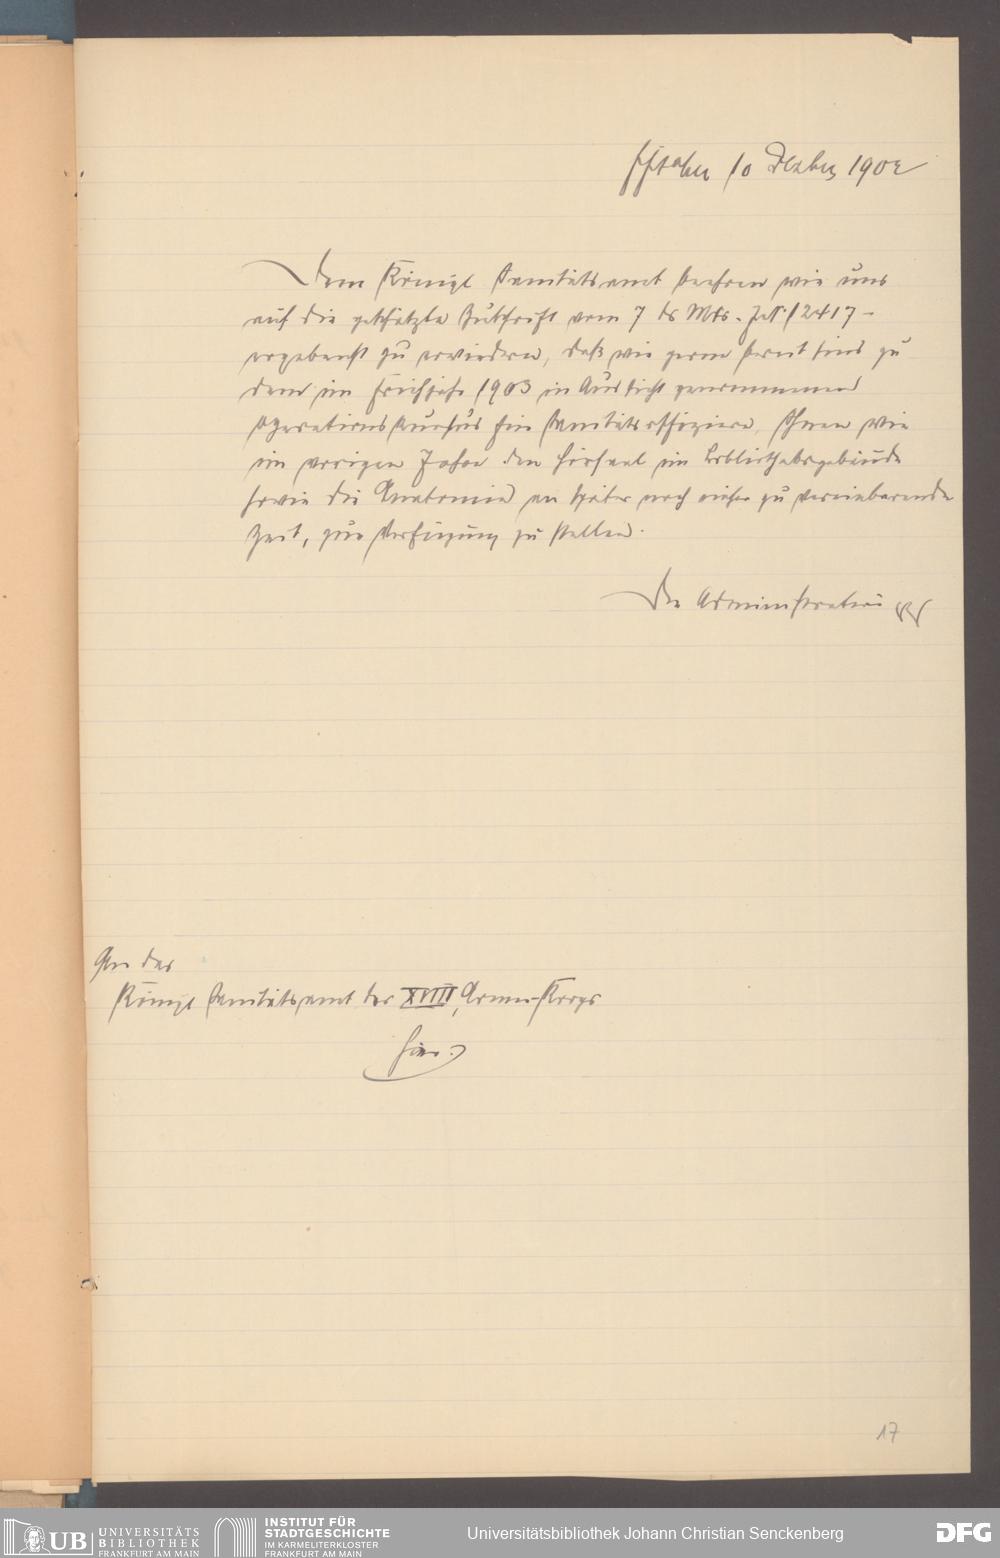 10 Dezember 1902
Dem Königl Sanitätsamt beehren wir uns
auf die geschätzte Zuschrift vom 7 ds Mts. J.N. 12417 –
ergebenst zu erwiedern, daß wir gerne bereit sind zu
dem im Frühjahr 1903 in Aussicht genommenen
Operationskursus für Sanitätsoffiziere, Ihnen wie
im vorigen Jahre den Hörsaal im Bibliotheksgebäude
sowie die Anatomie an später noch näher zu vereinbarende
Zeit, zur Verfügung zu stellen.
Die Administration
An das
Königl Sanitätsamt des XVIII, Armee-Korps
hier.
17
UB UNIVERSITÄTS
BIBLIOTHEK
FRANKFURT AM MAIN
INSTITUT FÜR
STADTGESCHICHTE
IM KARMELITERKLOSTER
FRANKFURT AM MAIN
Universitätsbibliothek Johann Christian Senckenberg
DFG